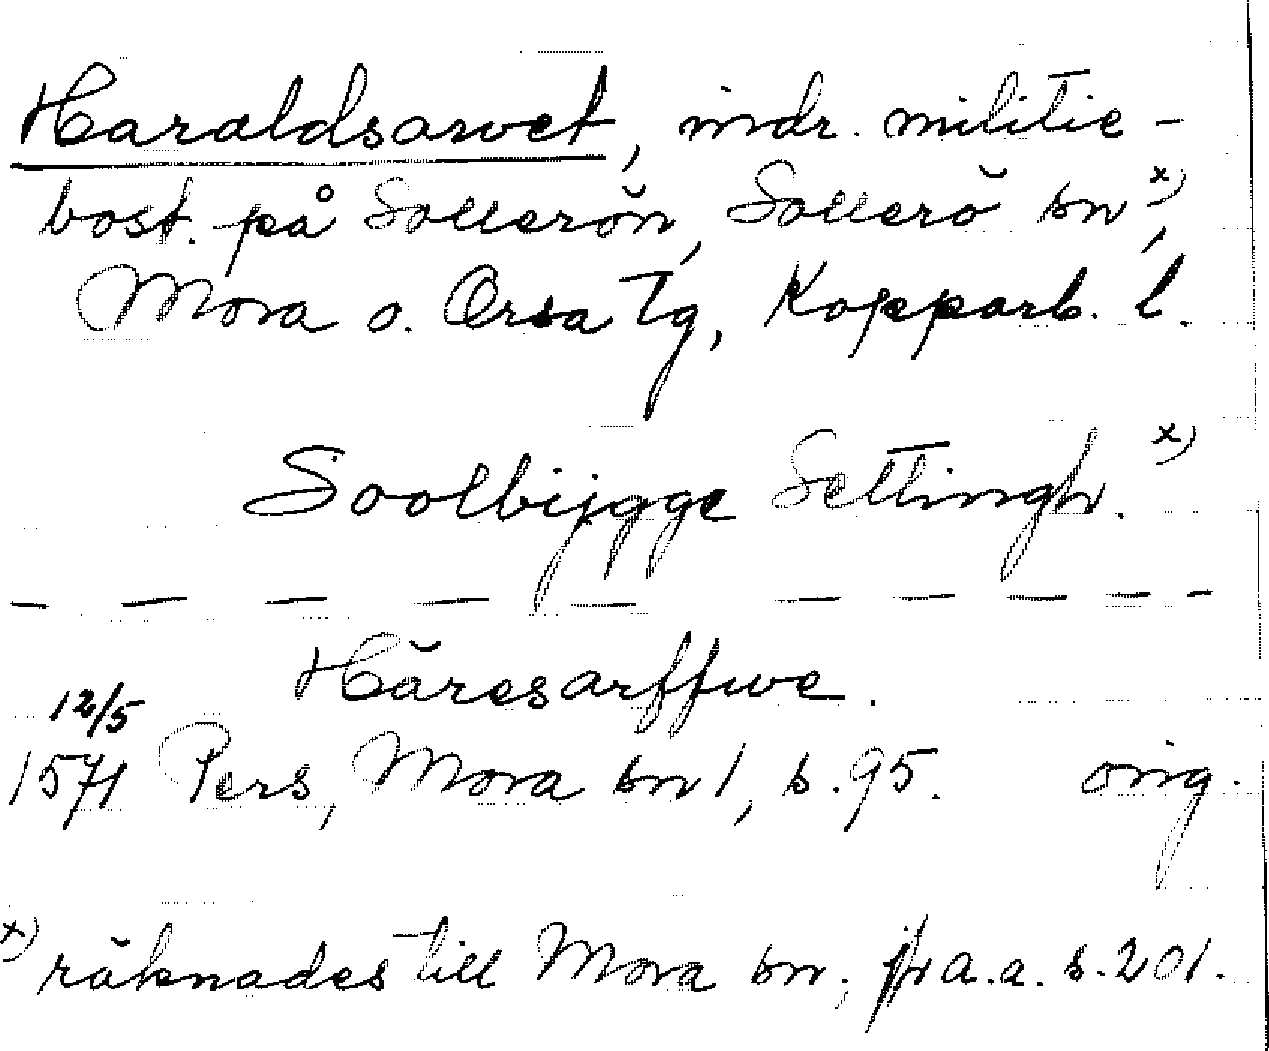 Haraldsarvet, indr. militie-
bost. på Sollerön, Sollerö sn x),
Mora o. Orsa tg, Kopparb. l.
Soolbijgge Settingh. x)
— — — — — — — — — —
Håresarffwe.
12/5
1571 Pers, Mora sn 1, s. 95. orig.
x) räknades till Mora sn; jfr a.a. s. 201.